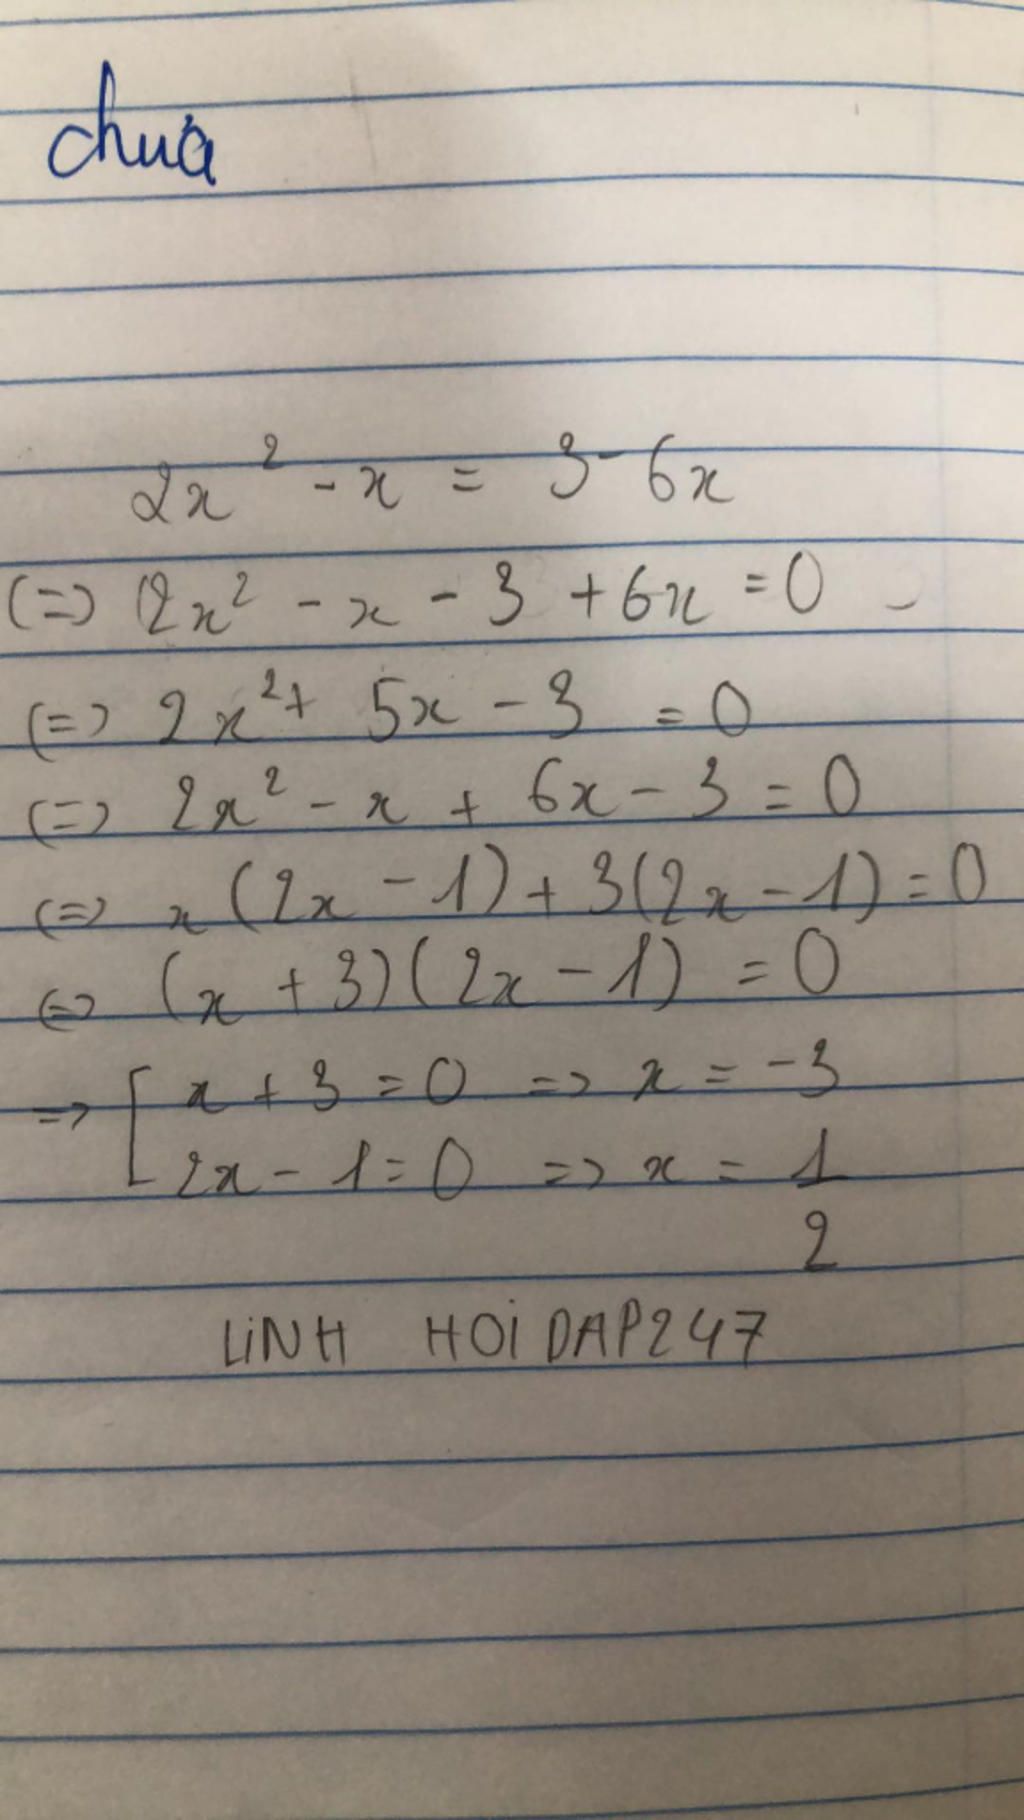 chưa
2x² - x = 3 - 6x
(=) 2x² - x - 3 + 6x = 0
(=) 2x² + 5x - 3 = 0
(=) 2x² - x + 6x - 3 = 0
(=) x(2x - 1) + 3(2x - 1) = 0
(=) (x + 3)(2x - 1) = 0
=> [ x + 3 = 0 => x = -3
2x - 1 = 0 => x = 1/2
LiNH HOiDAP247